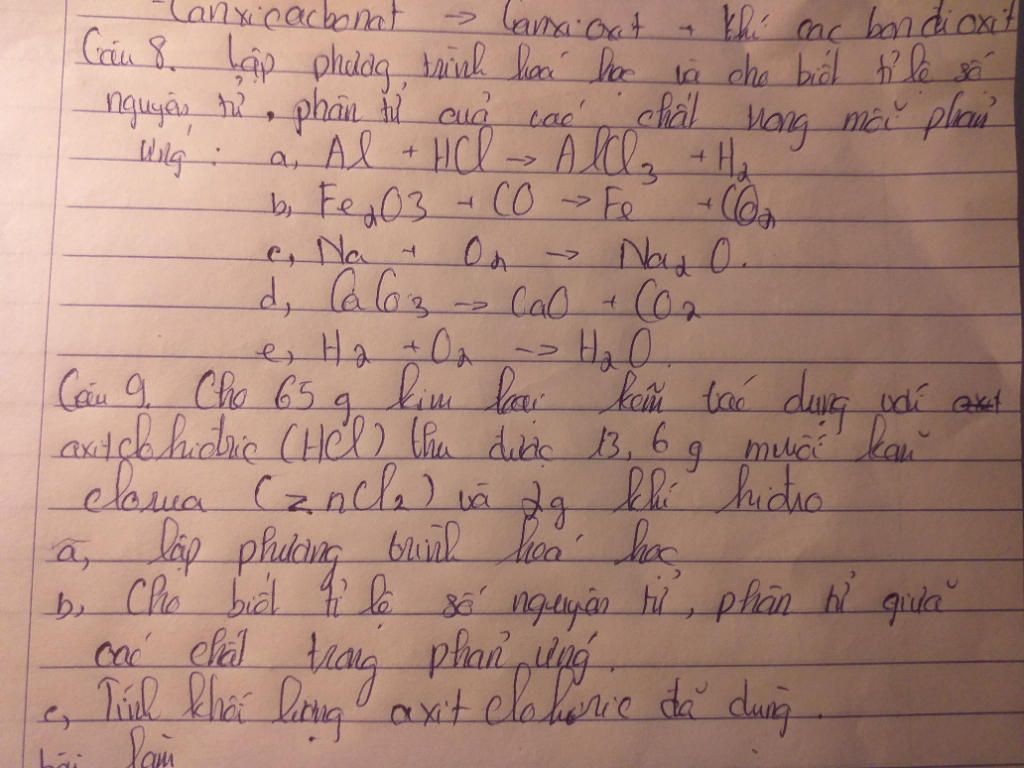 Canxicacbonat → Canxi oxit + khí cac bon đi oxit
Câu 8. Lập phương trình hoá học và cho biết tỉ lệ số
nguyên tử, phân tử của các chất trong mỗi phản
ứng: a, Al + HCl → AlCl3 + H2
b, Fe2O3 + CO → Fe + CO2
c, Na + O2 → Na2O.
d, CaCO3 → CaO + CO2
e, H2 + O2 → H2O
Câu 9. Cho 65 g kim loại kẽm tác dụng với
axit clohidric (HCl) thu được 13,6 g muối kẽm
clorua (ZnCl2) và 2g khí hiđro
a, lập phương trình hoá học
b, Cho biết tỉ lệ số nguyên tử, phân tử giữa
các chất trong phản ứng.
c, Tính khối lượng axit clohiric đã dùng.
bài làm